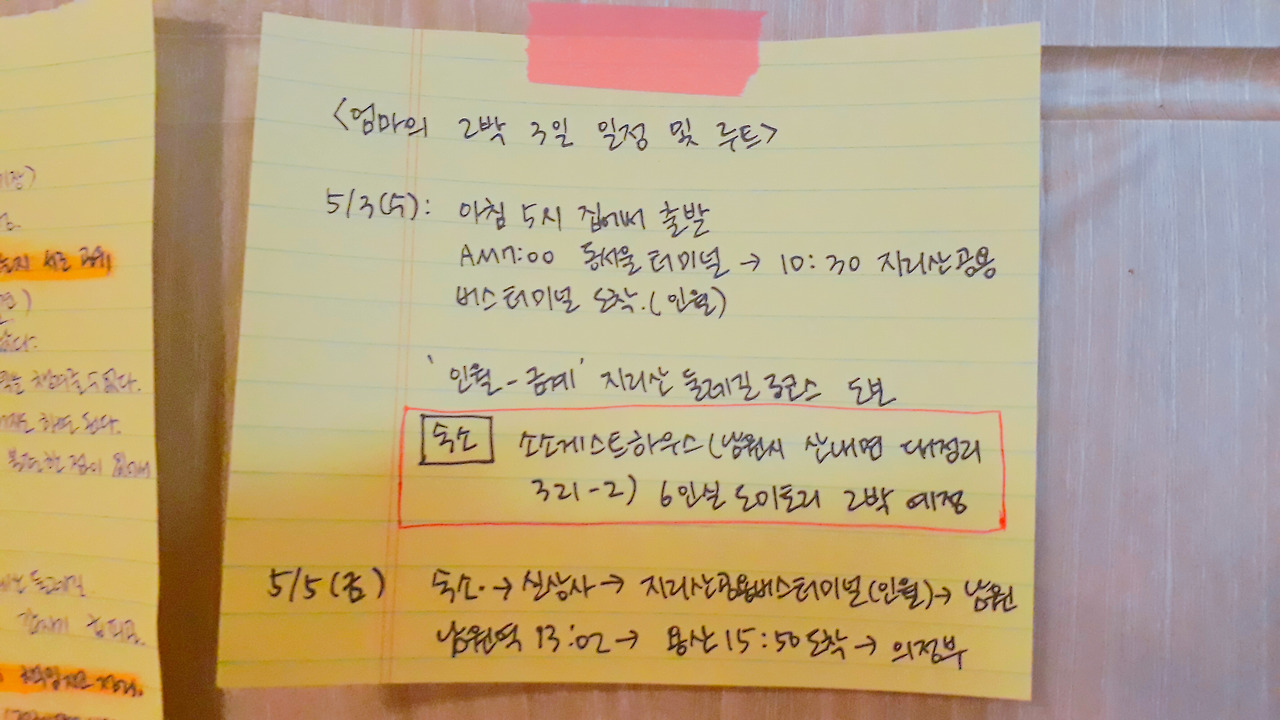 <엄마의 2박 3일 일정 및 루트>
5/3(수): 아침 5시 집에서 출발
AM7:00 동서울터미널 → 10:30 지리산공용
버스터미널 도착.(인월)
'인월-금계' 지리산 둘레길 3코스 도보
숙소 소소게스트하우스(남원시 산내면 대정리
321-2) 6인실 도미토리 2박 예정
5/5(금) 숙소.→ 실상사→ 지리산공용버스터미널(인월)→ 남원
남원역 13:02→ 용산 15:50도착→ 의정부
하면 된다.